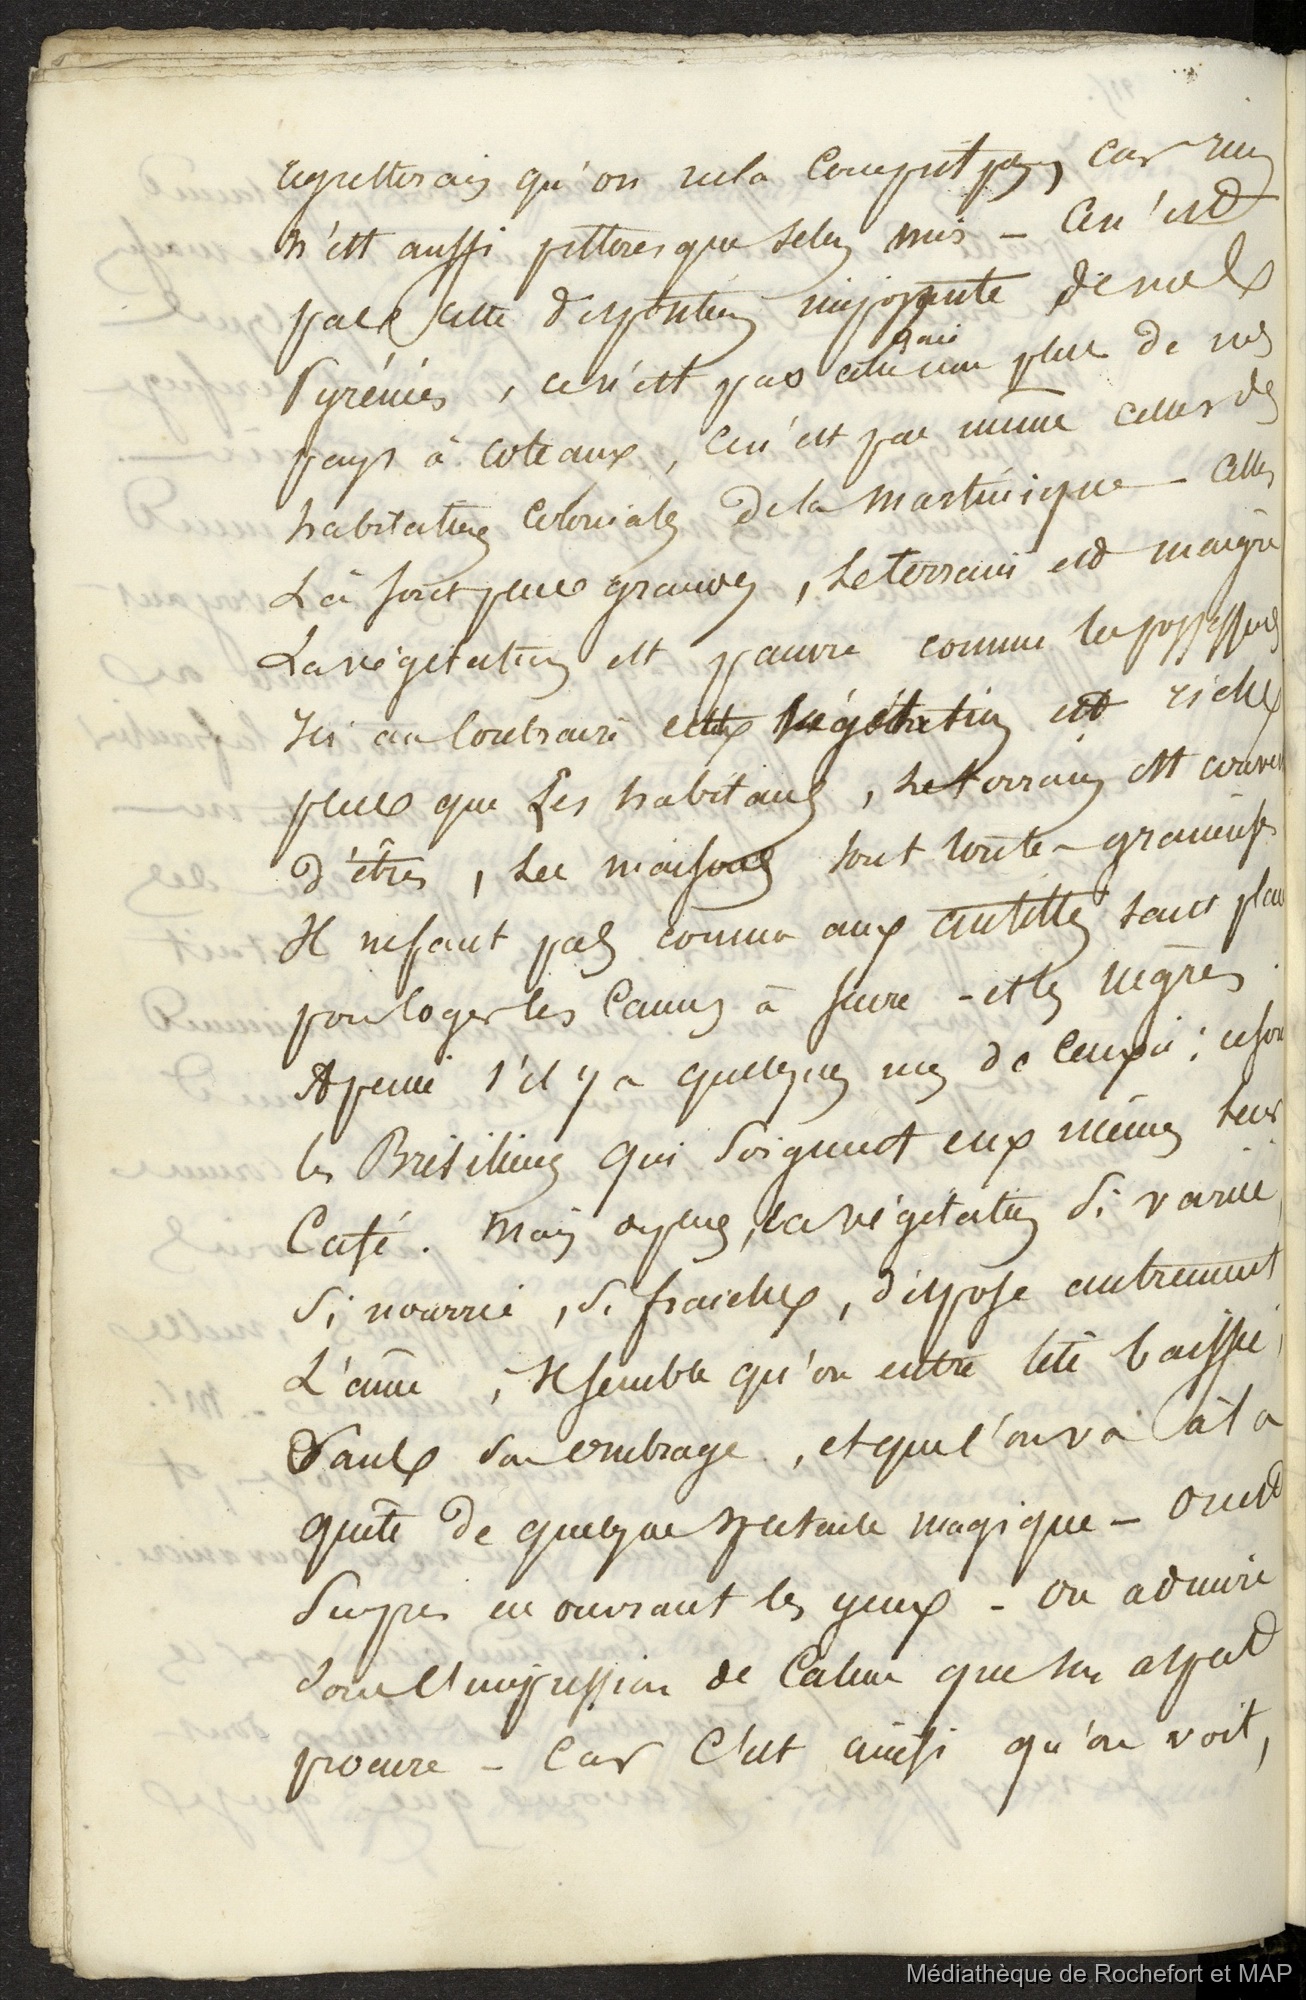 regretterais qu'on ne la comprit pas, car rien
n'est aussi pittoresque selon moi – Ce n'est
pas cette disposition imposante de nos
gaie
Pyrénées, ce n'est pas celle non plus de nos
pays à coteaux, ce n'est pas même celles des
habitations coloniales de la Martinique – celles
Là sont plus grandes, le terrain est maigre
La végétation est pauvre comme les possesseurs
Ici au contraire cette végétation est riche
plus que les habitans, le terrain est couvert
d'êtres, les maisons sont toutes gracieuses
Il ne faut pas comme aux antilles tant place
pour loger les cannes à sucre – et les nègres.
A peine s'il y a quelques uns de ceux ci : ce sont
les Brésiliens qui soignent eux mêmes leur
Café. Mais de plus, la végétation si variée,
si nourrie, si fraiche, dispose autrement
L'âme, il semble qu'on entre tête baissée,
Dans son ombrage, et que l'on va là à la
quête de quelque spectacle magique – on est
surpris en ouvrant les yeux – on admire
sous l'impression de calme que son aspect
procure – Car C'est ainsi qu'on voit,
Médiathèque de Rochefort et MAP